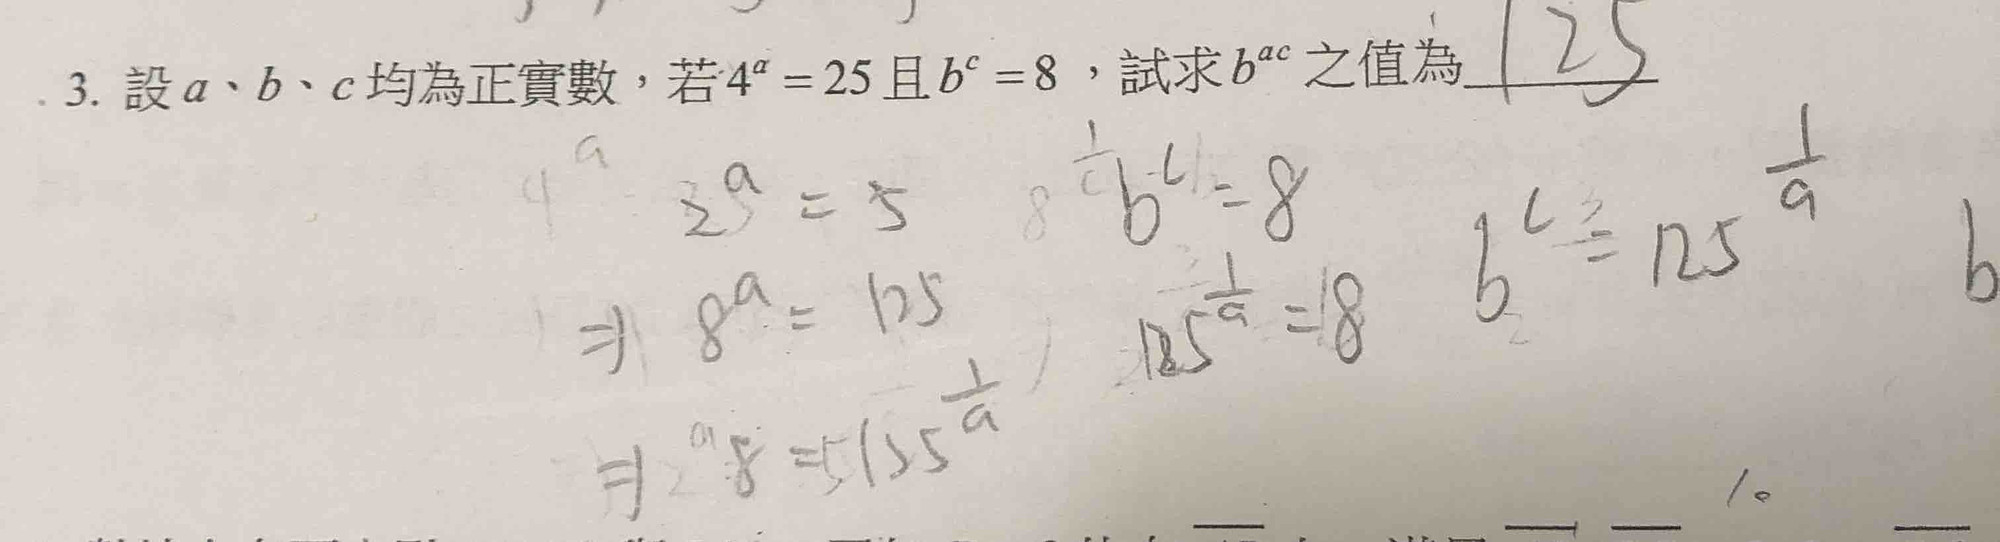 3. 設 a、b、c 均為正實數，若 4^a = 25 且 b^c = 8，試求 b^{ac} 之值為 125
2^a = 5 b^c = 8 b^c = 125^{1/a} b
⇒ 8^a = 125 125^{1/a} = 8
⇒ 8 = 125^{1/a}